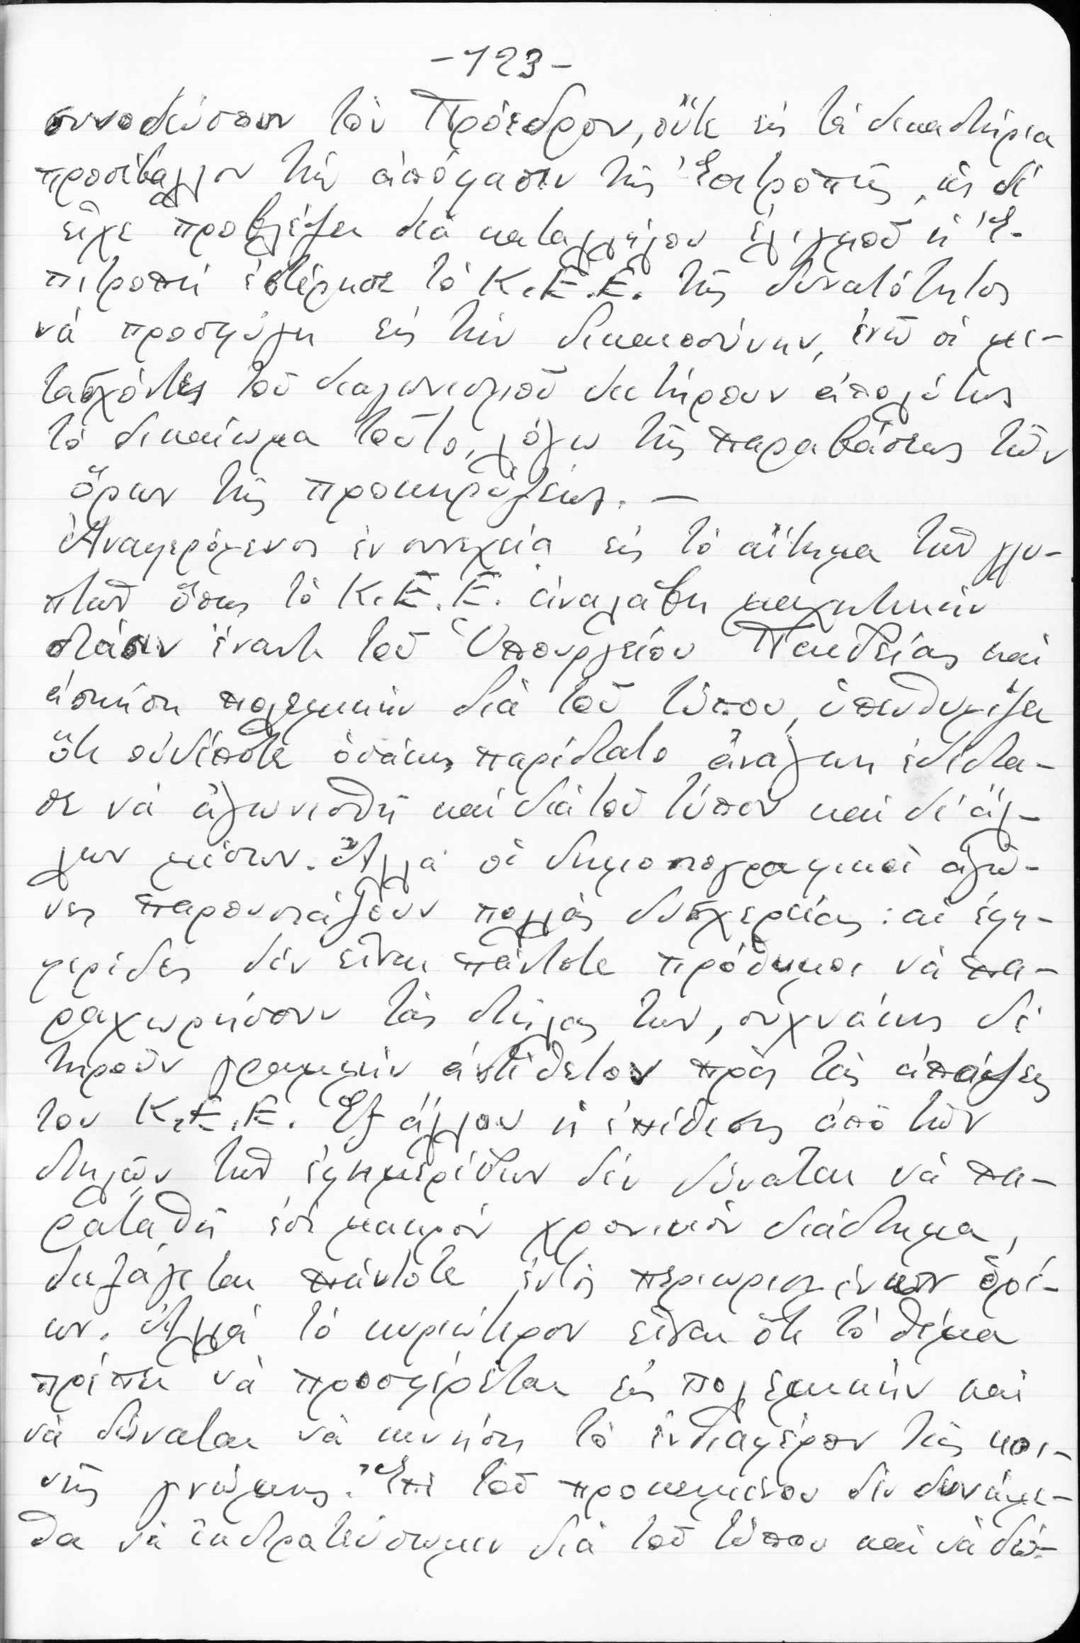 -123-
συνοδεύσουν τὸν Πρόεδρον, οὔτε εἰς τὰ δικαστήρια
προσέβαλλον τὴν ἀπόφασιν τῆς Ἐπιτροπῆς, ὡς δὲ
εἶχε προβλέψει διὰ καταλλήλου ἑλιγμοῦ ἡ Ἐ-
πιτροπή ἐστέρησε τὸ Κ.Ε.Ε. τῆς δυνατότητος
νὰ προσφύγῃ εἰς τὴν δικαιοσύνην, ἐνῶ οἱ με-
τασχόντες τοῦ διαγωνισμοῦ διετήρουν ἀπολύτως
τὸ δικαίωμα τοῦτο, λόγω τῆς παραβάσεως τῶν
ὅρων τῆς προκηρύξεως. —
Ἀναφερόμενος ἐν συνεχείᾳ εἰς τὸ αἴτημα τῶν γλυ-
πτῶν ὅπως τὸ Κ.Ε.Ε. ἀναλάβῃ μαχητικὴν
στάσιν ἔναντι τοῦ Ὑπουργείου Παιδείας καὶ
ἀσκήσῃ πολεμικὴν διὰ τοῦ τύπου, ὑπενθυμίζει
ὅτι οὐδέποτε ὁσάκις παρίστατο ἀνάγκη ἐδίστα-
σε νὰ ἀγωνισθῇ καὶ διὰ τοῦ τύπου καὶ δι' ἄλ-
λων μέσων. Ἀλλὰ οἱ δημοσιογραφικοὶ ἀγῶ-
νες παρουσιάζουν πολλὰς δυσχερείας: αἱ ἐφη-
μερίδες δὲν εἶναι πάντοτε πρόθυμοι νὰ πα-
ραχωρήσουν τὰς στήλας των, συχνάκις δὲ
τηροῦν γραμμὴν ἀντίθετον πρὸς τὰς ἀπόψεις
του Κ.Ε.Ε. Ἐξ ἄλλου ἡ ἐπίθεσις ἀπὸ τῶν
στηλῶν τῶν ἐφημερίδων δὲν δύναται νὰ πα-
ραταθῇ ἐπὶ μακρὸν χρονικὸν διάστημα,
διεξάγεται πάντοτε ἐντὸς περιωρισμένων ὁρί-
ων. Ἀλλὰ τὸ κυριώτερον εἶναι ὅτι τὸ θέμα
πρέπει νὰ προσφέρεται εἰς πολεμικὴν καὶ
νὰ δύναται νὰ κινήσῃ τὸ ἐνδιαφέρον τῆς κοι-
νῆς γνώμης. Ἐπὶ τοῦ προκειμένου δὲν δυνάμε-
θα νὰ ἐκστρατεύσωμεν διὰ τοῦ τύπου καὶ νὰ δώ-